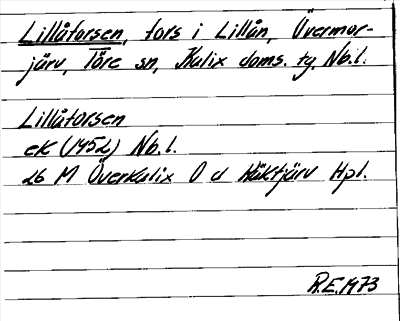 Lillåforsen, fors i Lillån, Övermor-
järv, Töre sn, Kalix doms. tg, Nb.l.
Lillåforsen
ek (1952) Nb.l.
26 M Överkalix O d Räktjärv Hpl.
R.E. 1973